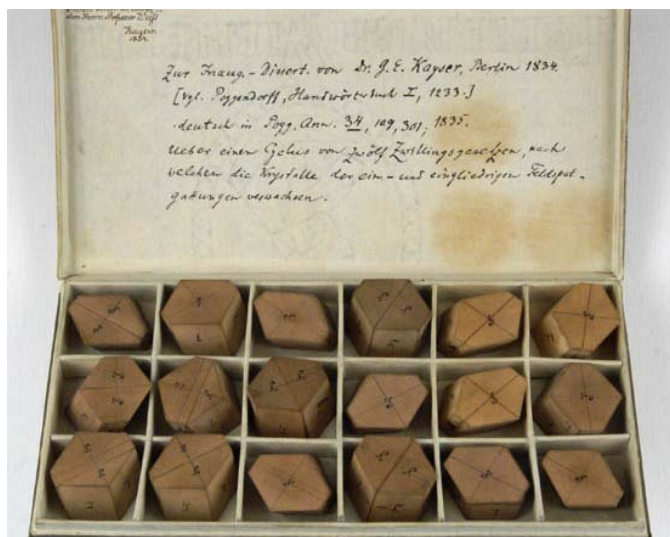 dem Herrn Professor Weiß
Kayser.
1834.
Zur Inaug.-Dissert. von Dr. G. E. Kayser, Berlin 1834.
[vgl. Poggendorff, Handwörterbuch I, 1233.]
deutsch in Pogg. Ann. 34, 109, 301; 1835.
Ueber einen Cyclus von zwölf Zwillingsgesetzen, nach
welchen die Krystalle der ein- und eingliedrigen Feldspat-
gattungen verwachsen.